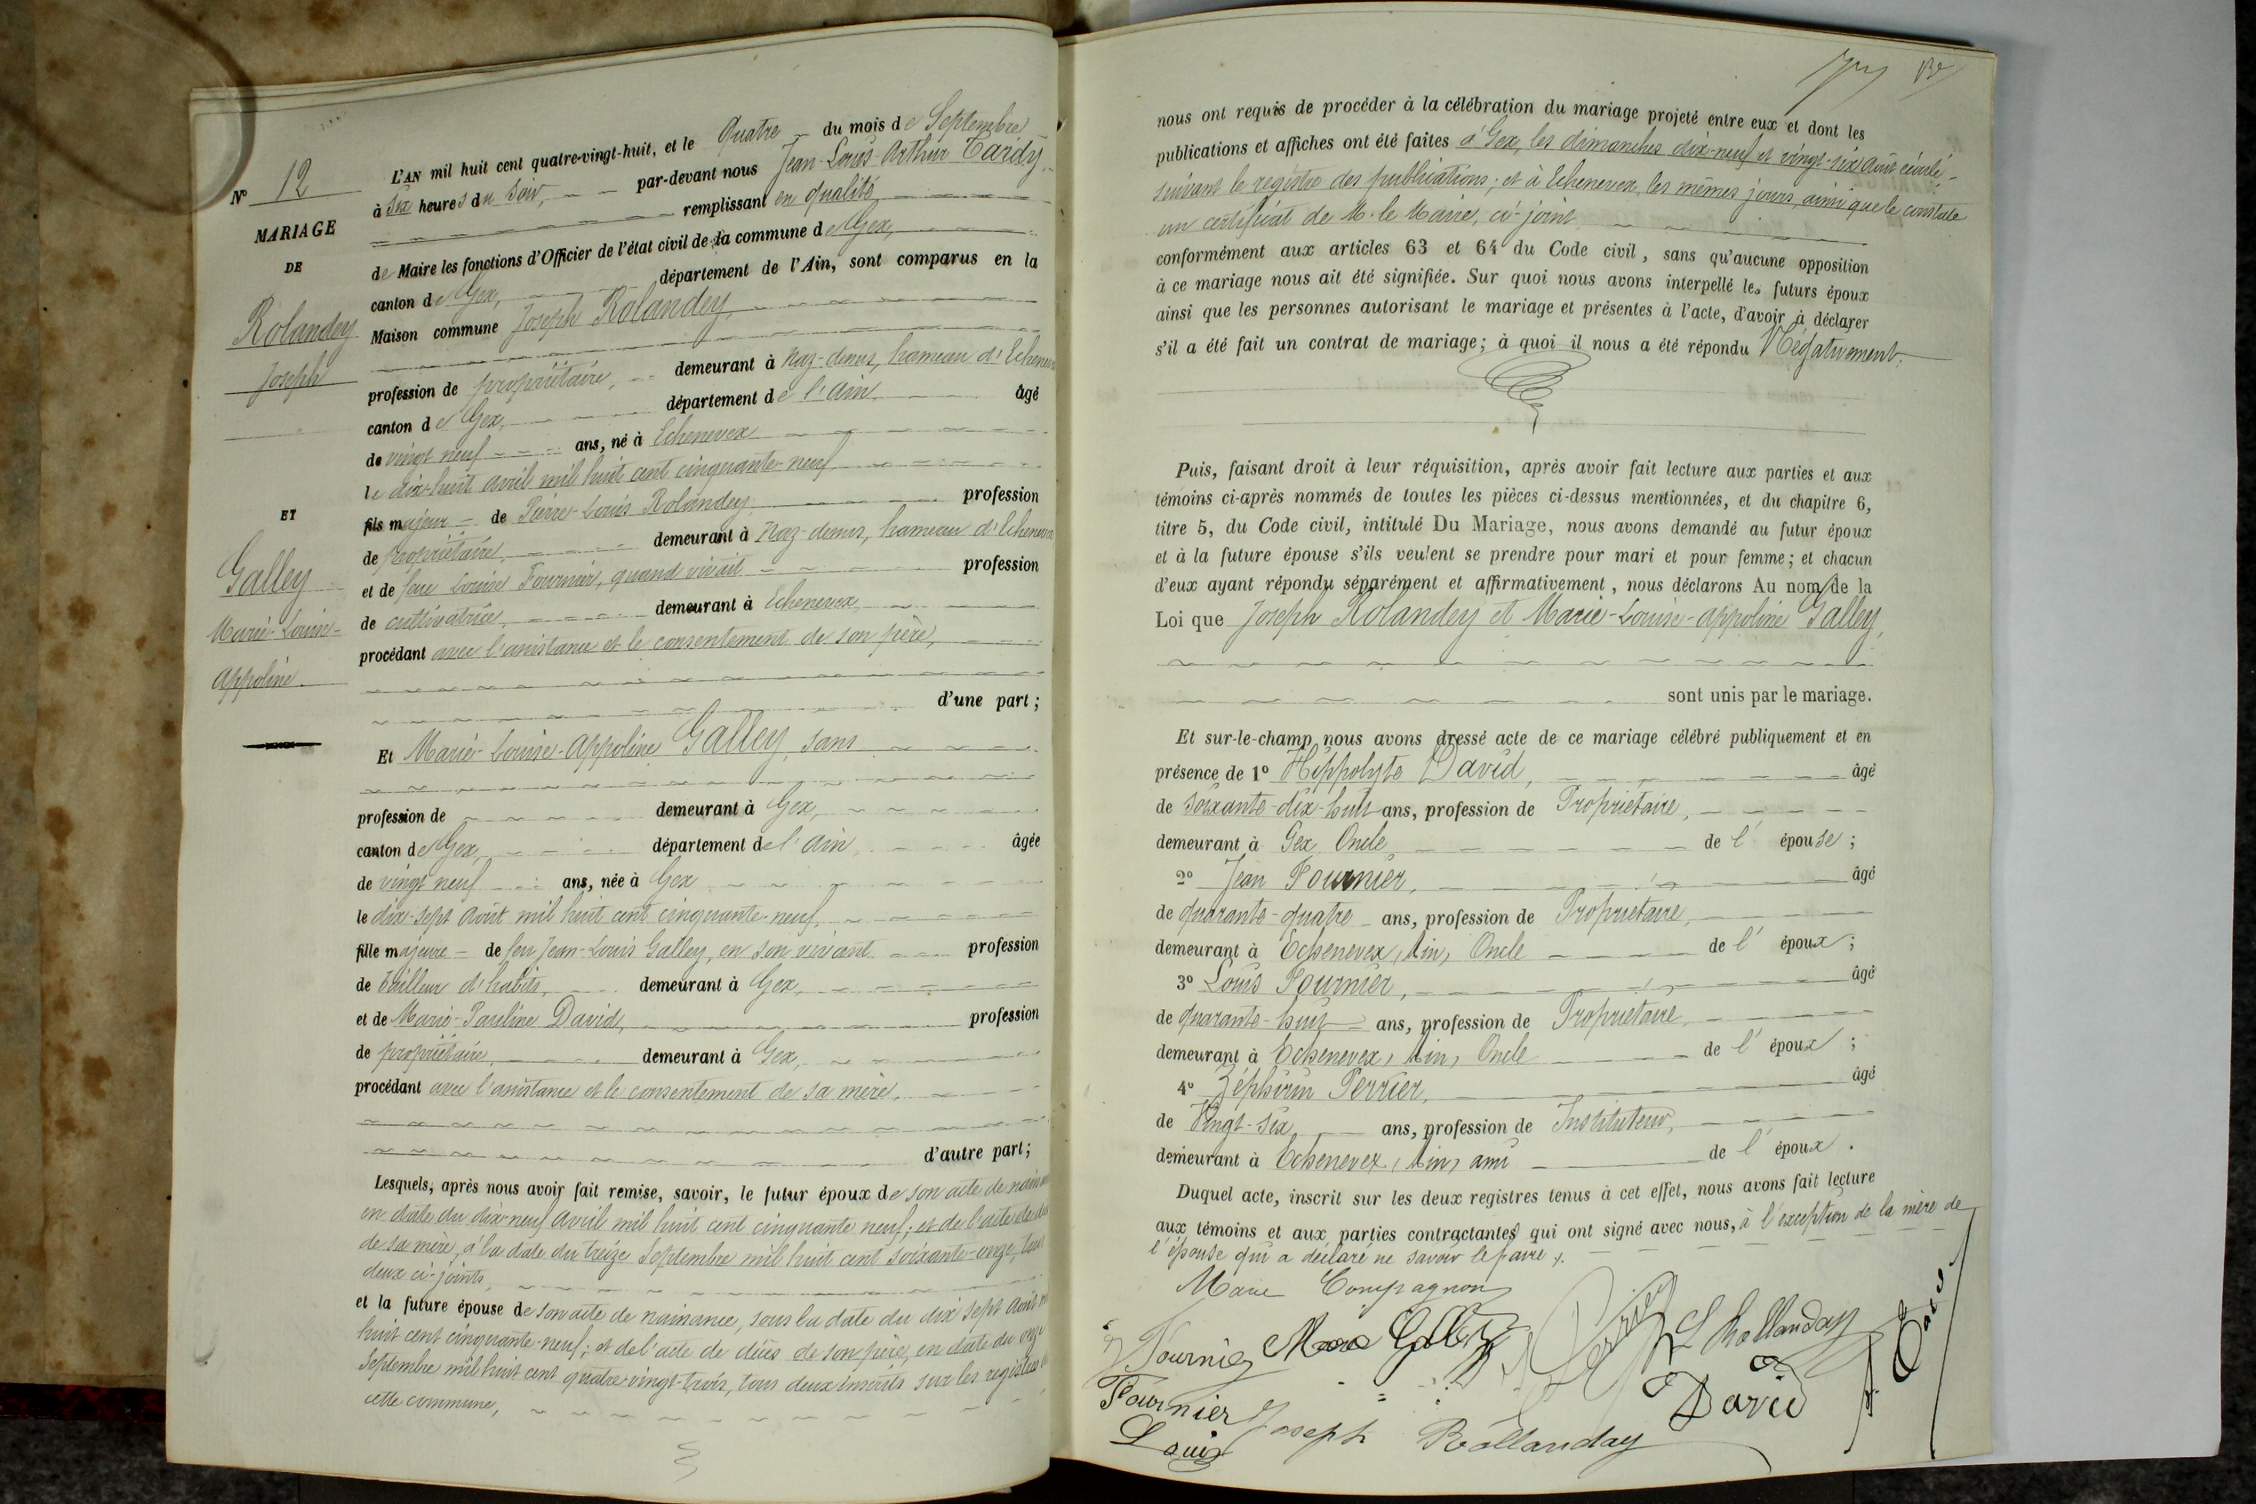 N° 12
MARIAGE
DE
Rolandey
Joseph
ET
Galley
Marie-Louise-
Appoline
L'AN mil huit cent quatre-vingt-huit, et le Quatre du mois de Septembre
à Six heures du Soir, par-devant nous Jean-Louis-Arthur Tardy,
remplissant en qualité
de Maire les fonctions d'Officier de l'état civil de la commune de Gex,
canton de Gex, département de l'Ain, sont comparus en la
Maison commune Joseph Rolandey,
profession de propriétaire, demeurant à Naz-dessus, hameau d'Echenevex
canton de Gex, département de l'Ain, âgé
de vingt neuf ans, né à Echenevex
le dix-huit avril mil huit cent cinquante-neuf
fils majeur de Pierre-Louis Rolandey, profession
de propriétaire, demeurant à Naz-dessus, hameau d'Echenevex
et de feue Louise Fournier, quand vivait profession
de cultivatrice, demeurant à Echenevex,
procédant avec l'assistance et le consentement de son père,
d'une part ;
Et Marie-Louise-Appoline Galley, sans
profession de demeurant à Gex,
canton de Gex, département de l'Ain âgée
de vingt neuf ans, née à Gex
le dix-sept Août mil huit cent cinquante-neuf,
fille majeure de feu Jean-Louis Galley, en son vivant profession
de tailleur d'habits, demeurant à Gex,
et de Marie-Pauline David, profession
de propriétaire, demeurant à Gex,
procédant avec l'assistance et le consentement de sa mère,
d'autre part ;
Lesquels, après nous avoir fait remise, savoir, le futur époux de son acte de naissance
en date du dix-neuf Avril mil huit cent cinquante neuf ; et de l'acte de décès
de sa mère, à la date du treize Septembre mil huit cent soixante-onze, tous
deux ci-joints,
et la future épouse de son acte de naissance, sous la date du dix sept Août mil
huit cent cinquante-neuf ; et de l'acte de décès de son père, en date du onze
Septembre mil huit cent quatre vingt-trois, tous deux inscrits sur les registres de
cette commune,
nous ont requis de procéder à la célébration du mariage projeté entre eux et dont les
publications et affiches ont été faites à Gex, les dimanches dix-neuf et vingt-six Août écoulé,
suivant le registre des publications ; et à Echenevex, les mêmes jours, ainsi que le constate
un certificat de M. le Maire, ci-joint
conformément aux articles 63 et 64 du Code civil, sans qu'aucune opposition
à ce mariage nous ait été signifiée. Sur quoi nous avons interpellé les futurs époux
ainsi que les personnes autorisant le mariage et présentes à l'acte, d'avoir à déclarer
s'il a été fait un contrat de mariage ; à quoi il nous a été répondu Négativement.
Puis, faisant droit à leur réquisition, après avoir fait lecture aux parties et aux
témoins ci-après nommés de toutes les pièces ci-dessus mentionnées, et du chapitre 6,
titre 5, du Code civil, intitulé Du Mariage, nous avons demandé au futur époux
et à la future épouse s'ils veulent se prendre pour mari et pour femme ; et chacun
d'eux ayant répondu séparément et affirmativement, nous déclarons Au nom de la
Loi que Joseph Rolandey et Marie-Louise-Appoline Galley,
sont unis par le mariage.
Et sur-le-champ nous avons dressé acte de ce mariage célébré publiquement et en
présence de 1° Hippolyte David, âgé
de soixante-dix-huit ans, profession de Propriétaire,
demeurant à Gex, Oncle de l'épouse ;
2° Jean Fournier, âgé
de quarante-quatre ans, profession de Propriétaire,
demeurant à Echenevex, Ain, Oncle de l'époux ;
3° Louis Fournier, âgé
de quarante-huit ans, profession de Propriétaire,
demeurant à Echenevex, Ain, Oncle de l'époux ;
4° Zéphirin Perrier, âgé
de Vingt-six ans, profession de Instituteur,
demeurant à Echenevex, Ain, ami de l'époux.
Duquel acte, inscrit sur les deux registres tenus à cet effet, nous avons fait lecture
aux témoins et aux parties contractantes qui ont signé avec nous, à l'exception de la mère de
l'épouse qui a déclaré ne savoir le faire.
Marie Compagnon
Fournier Marie Galley Perrier L Rollanday
Fournier Joseph Rollanday David
Louis